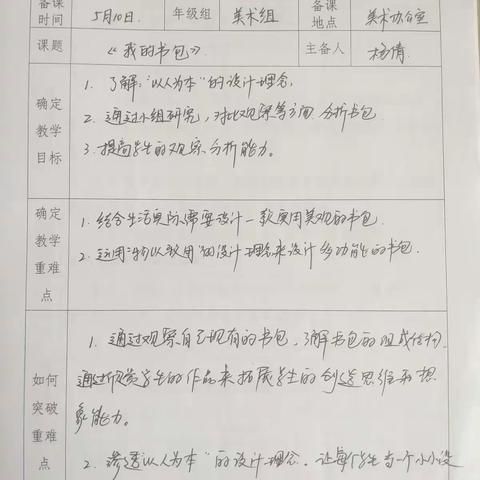 备课时间 5月10日. 年级组 美术组 备课地点 美术办公室
课题 《我的书包》. 主备人 杨倩
确定教学目标
1. 了解:"以人为本"的设计理念,
2. 通过小组研究,对比观察等方面 分析书包
3. 提高学生的观察 分析能力。
确定教学重难点
1. 结合生活实际需要设计一款实用美观的书包.
2. 运用"物以致用"的设计理念来设计多功能的书包.
如何突破重难点
1. 通过观察自己现有的书包,了解书包的组成结构.
通过欣赏学生的作品来拓展学生的创造思维和想
象能力。
2. 渗透"以人为本"的设计理念. 让每个学生当一个小小设